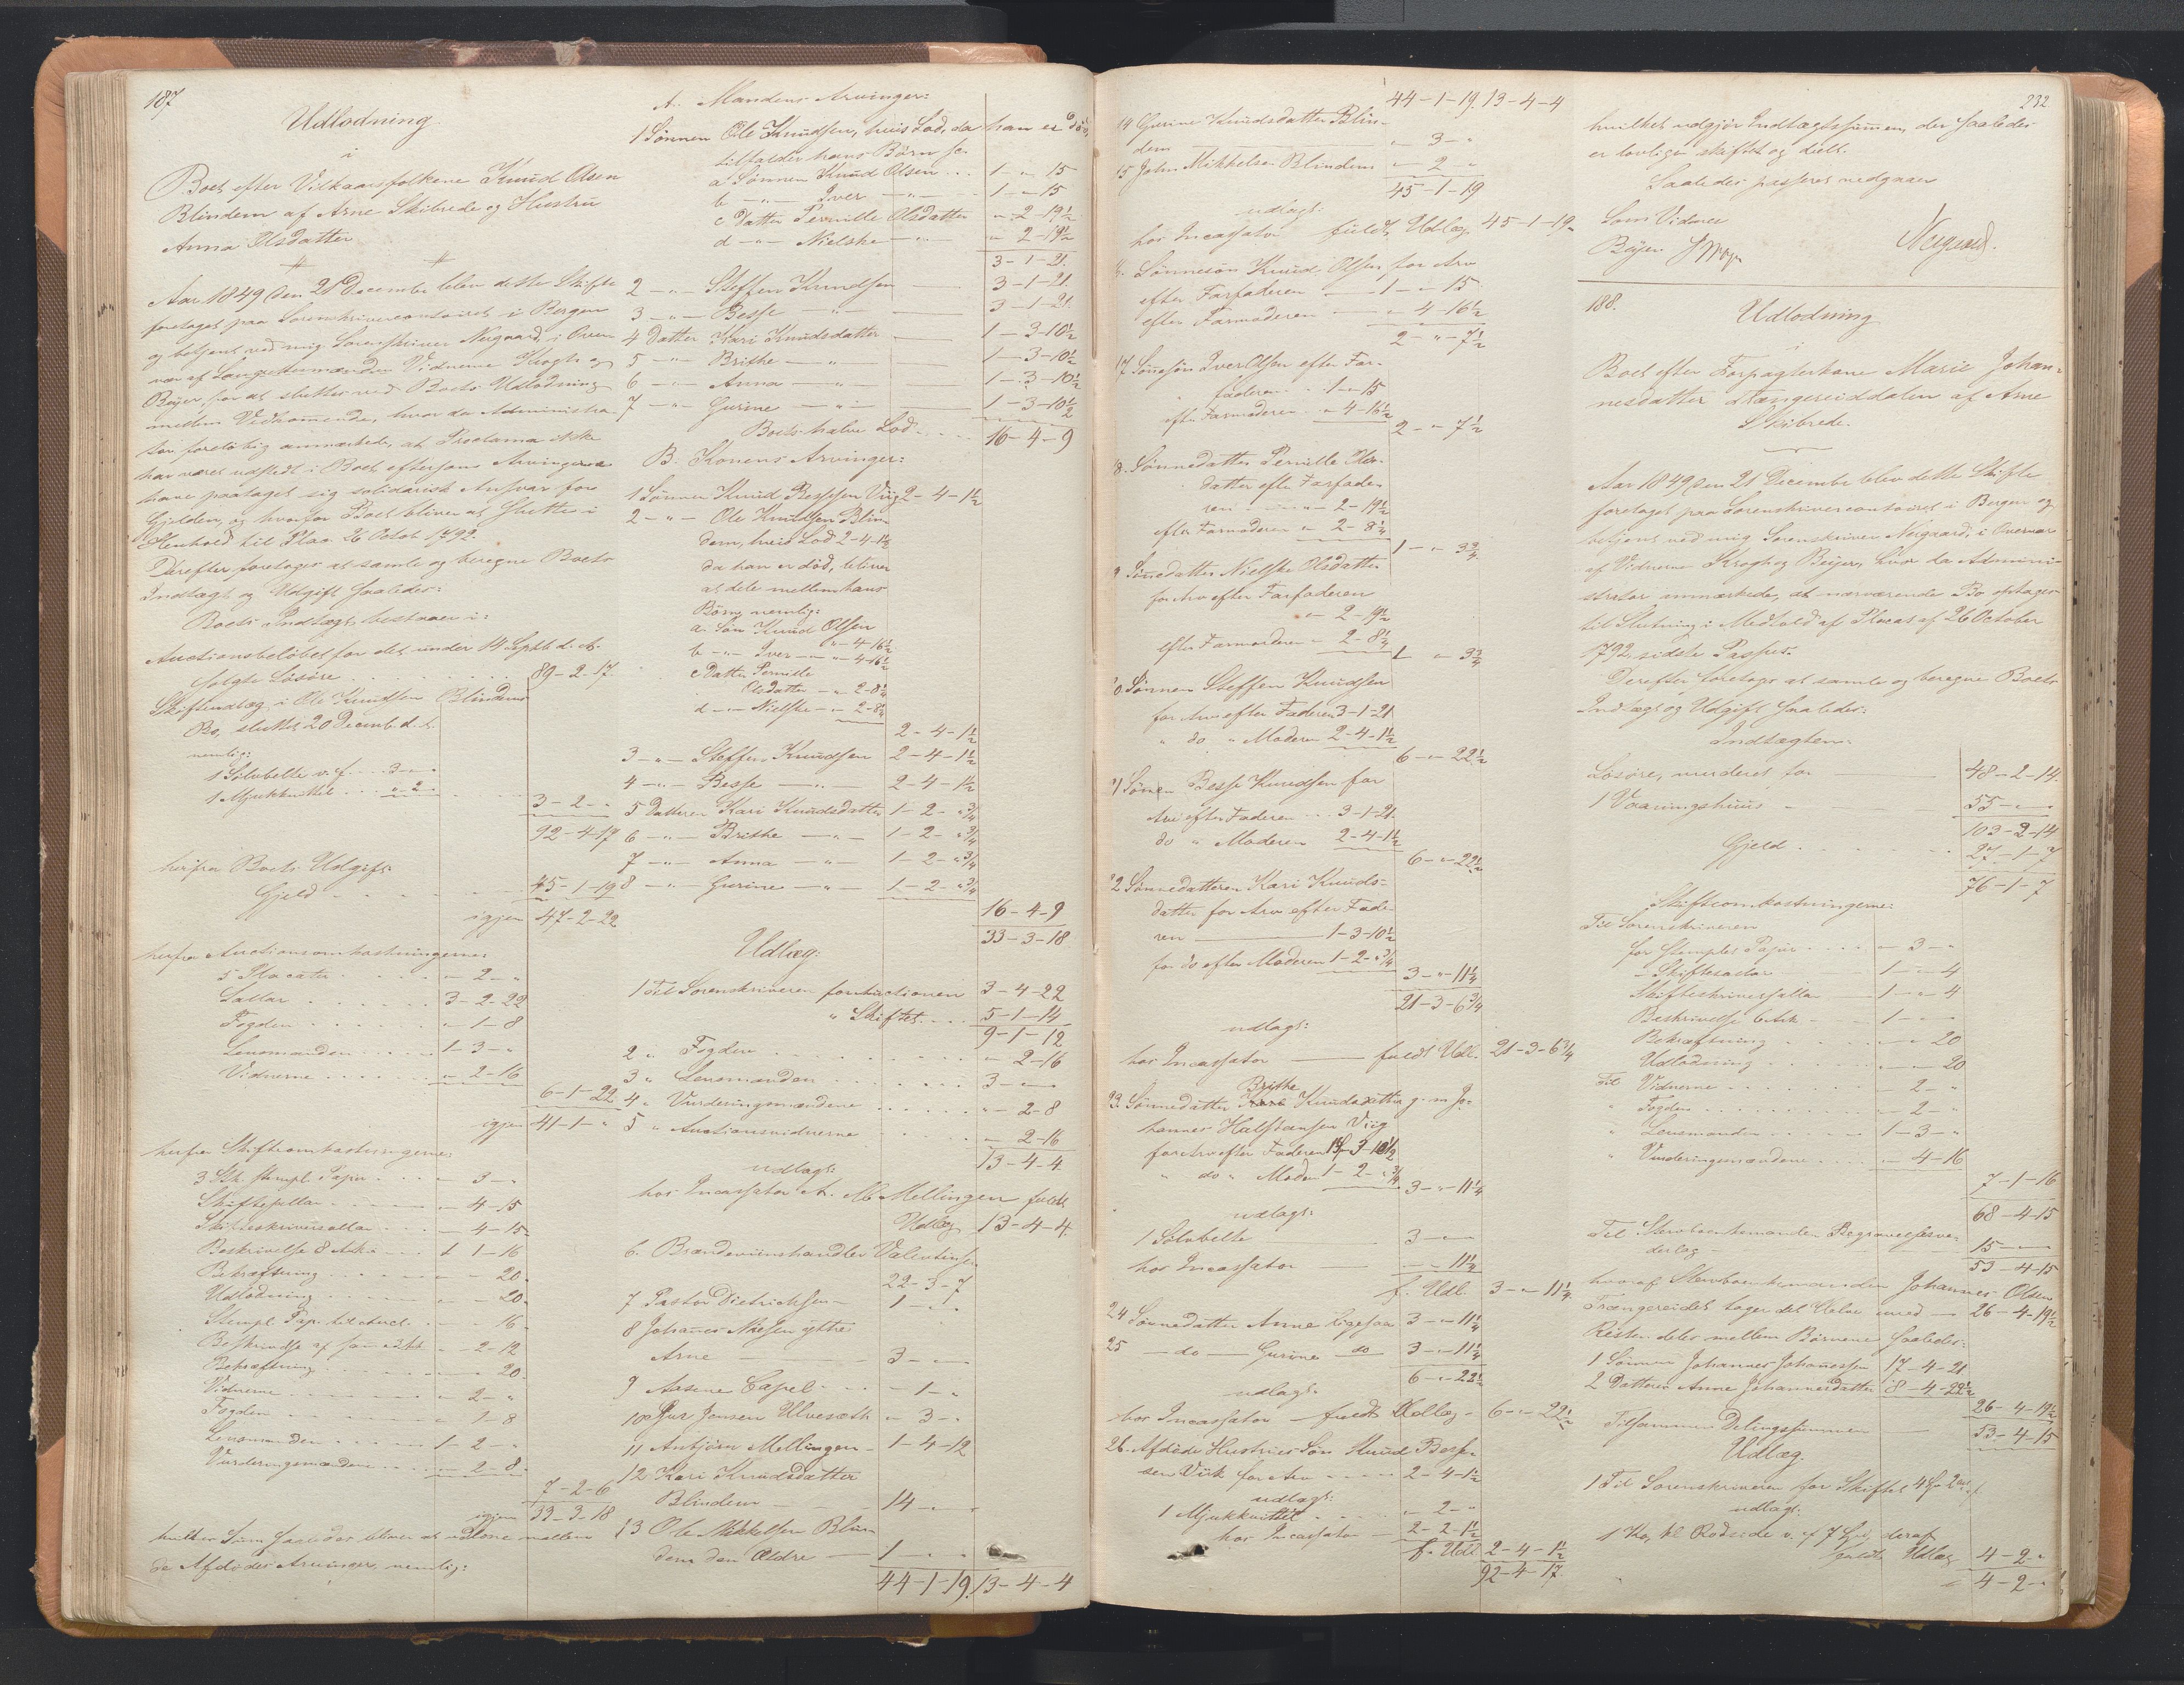 187
Udlodning
i
Boet efter Vilkaarsfolkene Knud Olsen
Blindem af Arne Skibrede og Hustru
Anna Olsdatter
Aar 1849 den 21 December blev dette Skifte
foretaget paa Sorenskrivercontoiret i Bergen
og betjent ved mig Sorenskriver Neigaard, i Over-
vær af Laugrettemændene Vidnerne Krogh og
Beyer, for at slutte ved Boets Udlodning
mellem Vedkommende, hvor da Administra-
tor foreløbig anmærkede, at Proclama ikke
har været udstedt i Boet eftersom Arvingerne
have paataget sig solidarisk Ansvar for
Gjelden, og hvorfor Boet bliver at slutte i
Henhold til Plac. 26 Octob 1792.
Derefter foretoges at samle og beregne Boets
Indtægt og Udgift saaledes:
Boets Indtægt bestaaer i:
Auctionsbeløbet for det under 14 Septb d. A.
solgte Løsøre 89-2-17.
Skifteudlæg i Ole Knudsen Blindems
Bo, sluttet 20 Decemb. d. A.
nemlig:
1 Sølvbelte v. f. 3-"-"
1 Mjukkuttel "-2-"
3-2-"
92-4-17
herfra Boets Udgift:
Gjeld 45-1-19
igjen 47-2-22
herfra Auctionsomkostningerne:
5 Placater "-2-"
Sallar 3-2-22
Fogden "-1-8
Lensmanden 1-3-"
Vidnerne "-2-16
6-1-22
igjen 41-1-"
herfra Skifteomkostningerne
3 Stk. stempl. Papir "-3-"
Skiftesallar "-4-15
Skifteskriversallar "-4-15
Beskrivelse 8 Ark 1-1-16
Bekræftning "-"-20
Udlodning "-"-20
Stempl. Pap. til Auct. "-"-16
Beskrivelse af samme "-2-12
Bekræftning "-"-20
Vidnerne "-2-"
Fogden "-1-8
Lensmanden 1-2-"
Vurderingsmændene "-2-8
7-2-6
igjen 33-3-18
hvilken Sum saaledes bliver at udlodne mellem
de Afdødes Arvinger, nemlig:
A. Mandens Arvinger:
1 Sønnen Ole Knudsen, hvis Lod, da han er død,
tilfalder hans Børn
a Sønnen Knud Olsen 1-"-15
b -"- Iver -"- 1-"-15
c Datter Pernille Olsdatter "-2-19½
d -"- Nielske -"- "-2-19½
3-1-21.
2 -"- Steffen Knudsen 3-1-21.
3 -"- Besse -"- 3-1-21.
4 Datter Kari Knudsdatter 1-3-10½
5 -"- Brithe -"- 1-3-10½
6 -"- Anna -"- 1-3-10½
7 -"- Gurine -"- 1-3-10½
Boets halve Lod 16-4-9
B. Konens Arvinger:
1 Sønnen Knud Bessesen Viig 2-4-1½
2 -"- Ole Knudsen Blin-
dem, hvis Lod 2-4-1½
da han er død, bliver
at dele mellem hans
Børn, nemlig:
a. Søn Knud Olsen
"-4-16½
b -"- Iver -"- "-4-16½
c Datter Pernille
Olsdatter "-2-8¼
d -"- Nielske "-2-8¼
2-4-1½
3 -"- Steffen Knudsen 2-4-1½
4 -"- Besse -"- 2-4-1½
5 Datteren Kari Knudsdatter 1-2-"¾
6 -"- Brithe -"- 1-2-"¾
7 -"- Anna -"- 1-2-"¾
8 -"- Gurine -"- 1-2-"¾
16-4-9
33-3-18
Udlæg:
1 Til Sorenskriveren for Auctionen 3-4-22
" Skiftet 5-1-14
9-1-12
2 " Fogden "-2-16
3 " Lensmanden 3-"-"
4 " Vurderingsmændene "-2-8
5 " Auctionsvidnerne "-2-16
13-4-4
udlagt:
hos Incassator A. M. Mellingen fuldt
Udlæg 13-4-4.
6. Brændeviinshandler Valentinsen
22-3-7
7 Pastor Dietrichsen 1-"-"
8 Johannes Nilsen yttre
Arne 3-"-"
9 Aasene Capel "-1-"
10 Gjur Jonsen Ulvesæth "-3-"
11 Anbjørn Mellingen 1-4-12
12 Kari Knudsdatter
Blindem 14-"-"
13 Ole Mikkelsen Blin-
dem den Ældre 1-"-"
44-1-19. 13-4-4
44-1-19. 13-4-4
14 Gurine Knudsdatter Blin-
dem "-3-"
15 John Mikkelsen Blindem "-2-"
45-1-19
udlagt:
hos Incassator fuldt Udlæg 45-1-19.
16. Sønnesøn Knud Olsen for Arv
efter Farfaderen 1-"-15
efter Farmoderen "-4-16½
2-"-7½
17 Sønnesøn Iver Olsen efter Far-
faderen 1-"-15
efter Farmoderen "-4-16½
2-"-7½
18. Sønnedatter Pernille Ols-
datter efter Farfade-
ren "-2-19½
efter Farmoderen "-2-8¼
1-"-3¾
9 Sønnedatter Nielske Olsdatter
for Arv efter Farfaderen
"-2-19½
efter Farmoderen "-2-8¼
1-"-3¾
20 Sønnen Steffen Knudsen
for Arv efter Faderen 3-1-21
" do " Moderen 2-4-1½
6-"-22½
21 Sønnen Besse Knudsen for
Arv efter Faderen 3-1-21.
do " Moderen 2-4-1½
6-"-22½
22 Sønnedatteren Kari Knuds-
datter for Arv efter Fade-
ren 1-3-10½
for do efter Moderen 1-2-"¾
3-"-11¼
21-3-6¾
udlagt:
hos Incassator fuldt Udl. 21-3-6¾
Brithe
23. Sønnedatter Kari Knudsdatter g. m. Jo-
hannes Halstensen Viig
for Arv efter Faderen 1-3-10½
" do " Moder 1-2-"¾
3-"-11¼
udlagt:
1 Sølvbelte 3-"-"
hos Incassator "-"-11¼
f. Udl. 3-"-11¼
24 Sønnedatter Anne ligesaa 3-"-11¼
25 -do- Gurine do 3-"-11¼
6-"-22½
udlagt:
hos Incassator fuldt Udlæg 6-"-22½
26. Afdøde Hustrues Søn Knud Besse-
sen Viik for Arv 2-4-1½
udlagt:
1 Mjukkuttel "-2-"
hos Incassator 2-2-1½
f. Udl. 2-4-1½
92-4-17.
232
hvilket udgjør Indtægtssummen, der saaledes
er lovligen skiftet og deelt.
Saaledes passeret nedgaaer
Som Vidner
Beyer
Neigaard.
188.
Udlodning
i
Boet efter Forpagterkone Marie Johan-
nesdatter Trængereiddalen af Arne
Skibrede.
Aar 1849 den 21 December blev dette Skifte
foretaget paa Sorenskrivercontoiret i Bergen og
betjent ved mig Sorenskriver Neigaard, i Overvær
af Vidnerne Krogh og Beyer, hvor da Admini-
strator anmærkede, at nærværende Bo optages
til Slutning i Medhold af Placat af 26 October
1792, sidste Passus.
Derefter foretoges at samle og beregne Boets
Indtægt og Udgift saaledes:
Indtægten:
Løsøre, vurderet for 48-2-14.
1 Vaaningshuus 55-"-"
103-2-14
Gjeld 27-1-7
76-1-7
Skifteomkostningerne:
Til Sorenskriveren
for stemplet Papir "-3-"
- Skiftesallar 1-"-4
Skifteskriversallar 1-"-4
Beskrivelse 6 Ark 1-"-"
Bekræftning "-"-20
Udlodning "-"-20
Til Vidnerne "-2-"
" Fogden "-2-"
" Lensmanden 1-3-"
" Vurderingsmændene "-4-16
7-1-16
68-4-15
Til Stervboenkemanden Begravelsesve-
derlag 15-"-"
53-4-15
hvoraf Stervboenkemanden Johannes Olsen
Trængereidet tager det Halve med 26-4-19½
Resten deles mellem Børnene saaledes:
1 Sønnen Johannes Johannessen 17-4-21
2 Datteren Anne Johannesdatter 8-4-22½
26-4-19½
Tilsammen Delingssummen 53-4-15
Udlæg:
1 Til Sorenskriveren for Skiftet 4 Spd 2
udlagt:
1 Ko, kl. Rødside v. f. 7 Spd, deraf
fuldt Udlæg 4-2-"
4-2-"